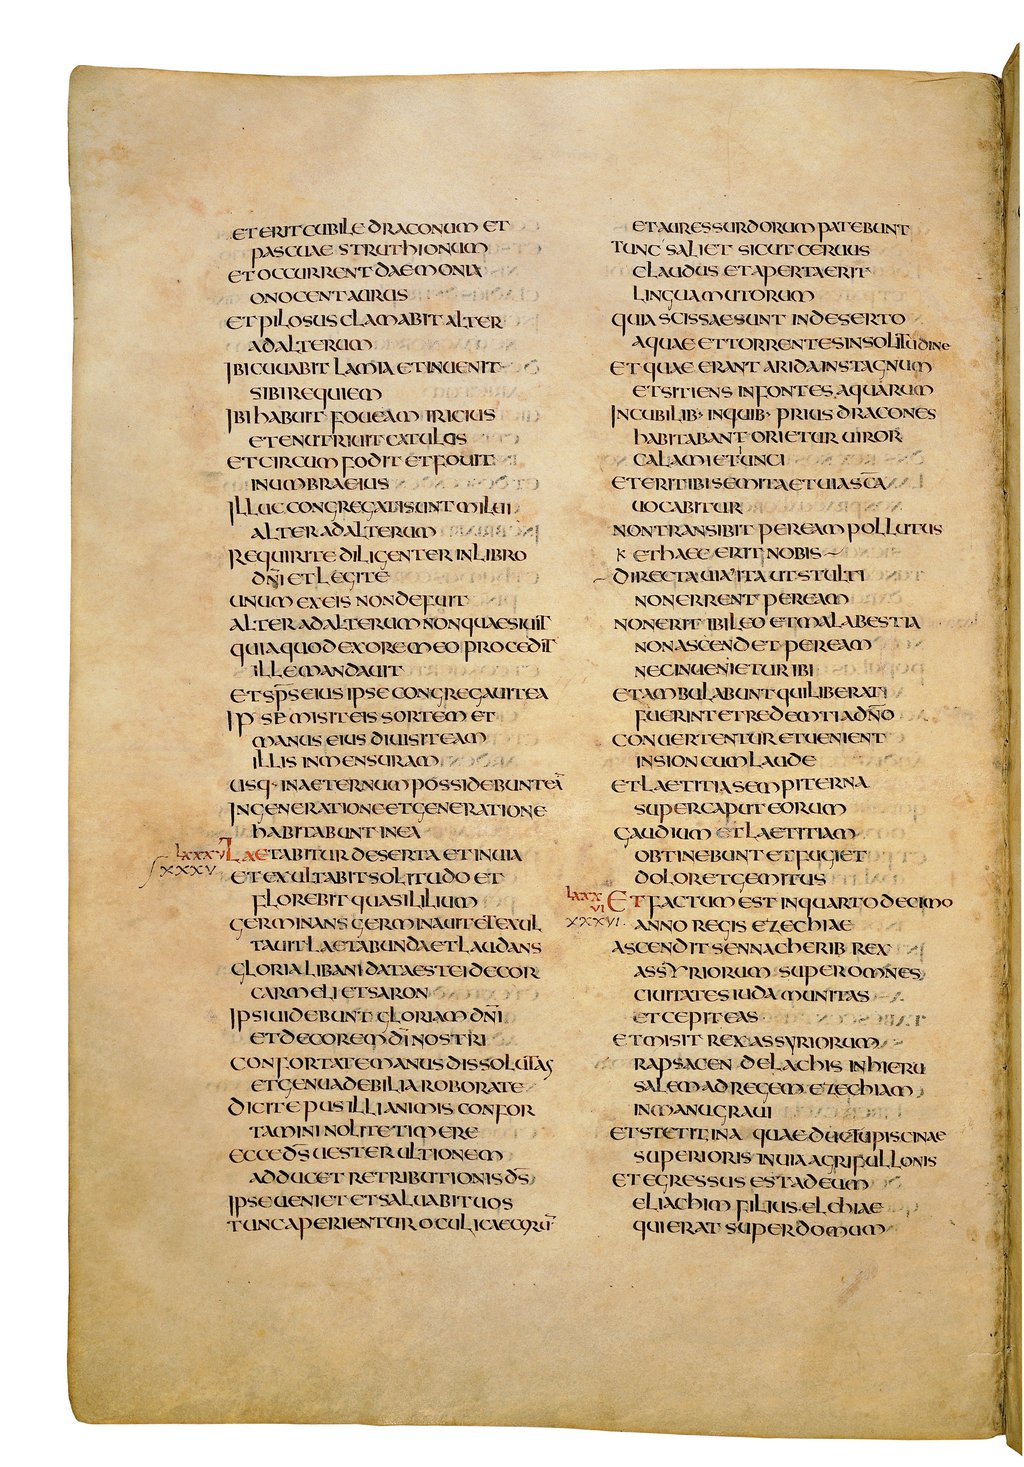 ET ERIT CUBILE DRACONUM ET
PASCUAE STRUTHIONUM
ET OCCURRENT DAEMONIA
ONOCENTAURUS
ET PILOSUS CLAMABIT ALTER
AD ALTERUM
IBI CUUABIT LAMIA ET INUENIT
SIBI REQUIEM
IBI HABUIT FOUEAM IRICIUS
ET ENUTRIUIT CATULOS
ET CIRCUM FODIT ET FOUIT
IN UMBRA EIUS
ILLUC CONGREGATI SUNT MILUI
ALTER AD ALTERUM
REQUIRITE DILIGENTER IN LIBRO
DN̄I ET LEGITE
UNUM EX EIS NON DEFUIT
ALTER AD ALTERUM NON QUAESIUIT
QUIA QUOD EX ORE MEO PROCEDIT
ILLE MANDAUIT
ET SP̄S EIUS IPSE CONGREGAUIT EA
IPSE MISIT EIS SORTEM ET
MANUS EIUS DIUISIT EAM
ILLIS IN MENSURAM
USQ· IN AETERNUM POSSIDEBUNT EĀ
IN GENERATIONE ET GENERATIONE
HABITABUNT IN EA
LXXXV LAETABITUR DESERTA ET INUIA
XXXV ET EXULTABIT SOLITUDO ET
FLOREBIT QUASI LILIUM
GERMINANS GERMINAUIT ET EXUL
TAUIT LAETABUNDA ET LAUDANS
GLORIA LIBANI DATA EST EI DECOR
CARMELI ET SARON
IPSI UIDEBUNT GLORIAM DN̄I
ET DECOREM DĪ NOSTRI
CONFORTATE MANUS DISSOLUTAS
ET GENUA DEBILIA ROBORATE
DICITE PUSILLIANIMIS CONFOR
TAMINI NOLITE TIMERE
ECCE DS̄ UESTER ULTIONEM
ADDUCET RETRIBUTIONIS DS̄
IPSE UENIET ET SALUABIT UOS
TUNC APERIENTUR OCULI CAECORŪ
ET AURES SURDORUM PATEBUNT
TUNC SALIET SICUT CERUUS
CLAUDUS ET APERTA ERIT
LINGUA MUTORUM
QUIA SCISSAE SUNT IN DESERTO
AQUAE ET TORRENTES IN SOLITUDINE
ET QUAE ERANT ARIDA IN STAGNUM
ET SITIENS IN FONTES AQUARUM
IN CUBILIB· IN QUIB· PRIUS DRACONES
HABITABANT ORIETUR UIROR
CALAMI ET IUNCI
ET ERIT IBI SEMITA ET UIA SC̄A
UOCABITUR
NON TRANSIBIT PER EAM POLLUTUS
ET HAEC ERIT NOBIS
DIRECTA UIA ITA UT STULTI
NON ERRENT PER EAM
NON ERIT IBI LEO ET MALA BESTIA
NON ASCENDET PER EAM
NEC INUENIETUR IBI
ET AMBULABUNT QUI LIBERATI
FUERINT ET REDEMTI A DN̄O
CONUERTENTUR ET UENIENT
IN SION CUM LAUDE
ET LAETITIA SEMPITERNA
SUPER CAPUT EORUM
GAUDIUM ET LAETITIAM
OBTINEBUNT ET FUGIET
DOLOR ET GEMITUS
LXXXVI ET FACTUM EST IN QUARTO DECIMO
XXXVI· ANNO REGIS EZECHIAE
ASCENDIT SENNACHERIB REX
ASSYRIORUM SUPER OMNES
CIUITATES IUDA MUNITAS
ET CEPIT EAS
ET MISIT REX ASSYRIORUM
RAPSACEN DE LACHIS IN HIERU
SALEM AD REGEM EZECHIAM
IN MANU GRAUI
ET STETIT IN AQUAEDUCTU PISCINAE
SUPERIORIS IN UIA AGRI FULLONIS
ET EGRESSUS EST AD EUM
ELIACHIM FILIUS ELCHIAE
QUI ERAT SUPER DOMUM